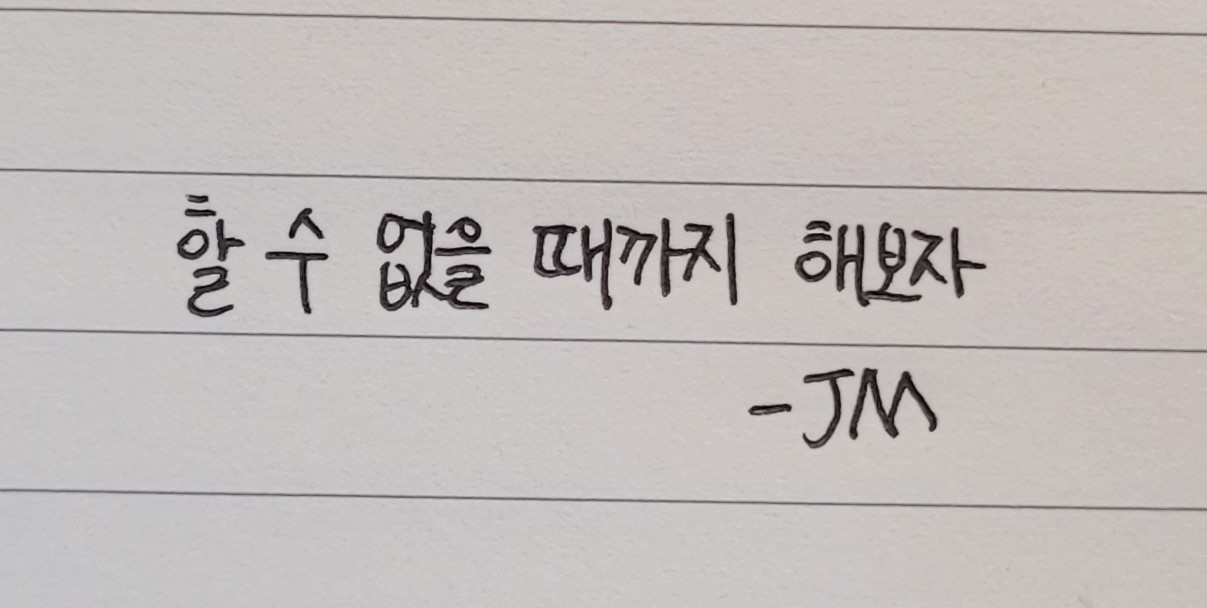 할 수 없을 때까지 해보자
-JM